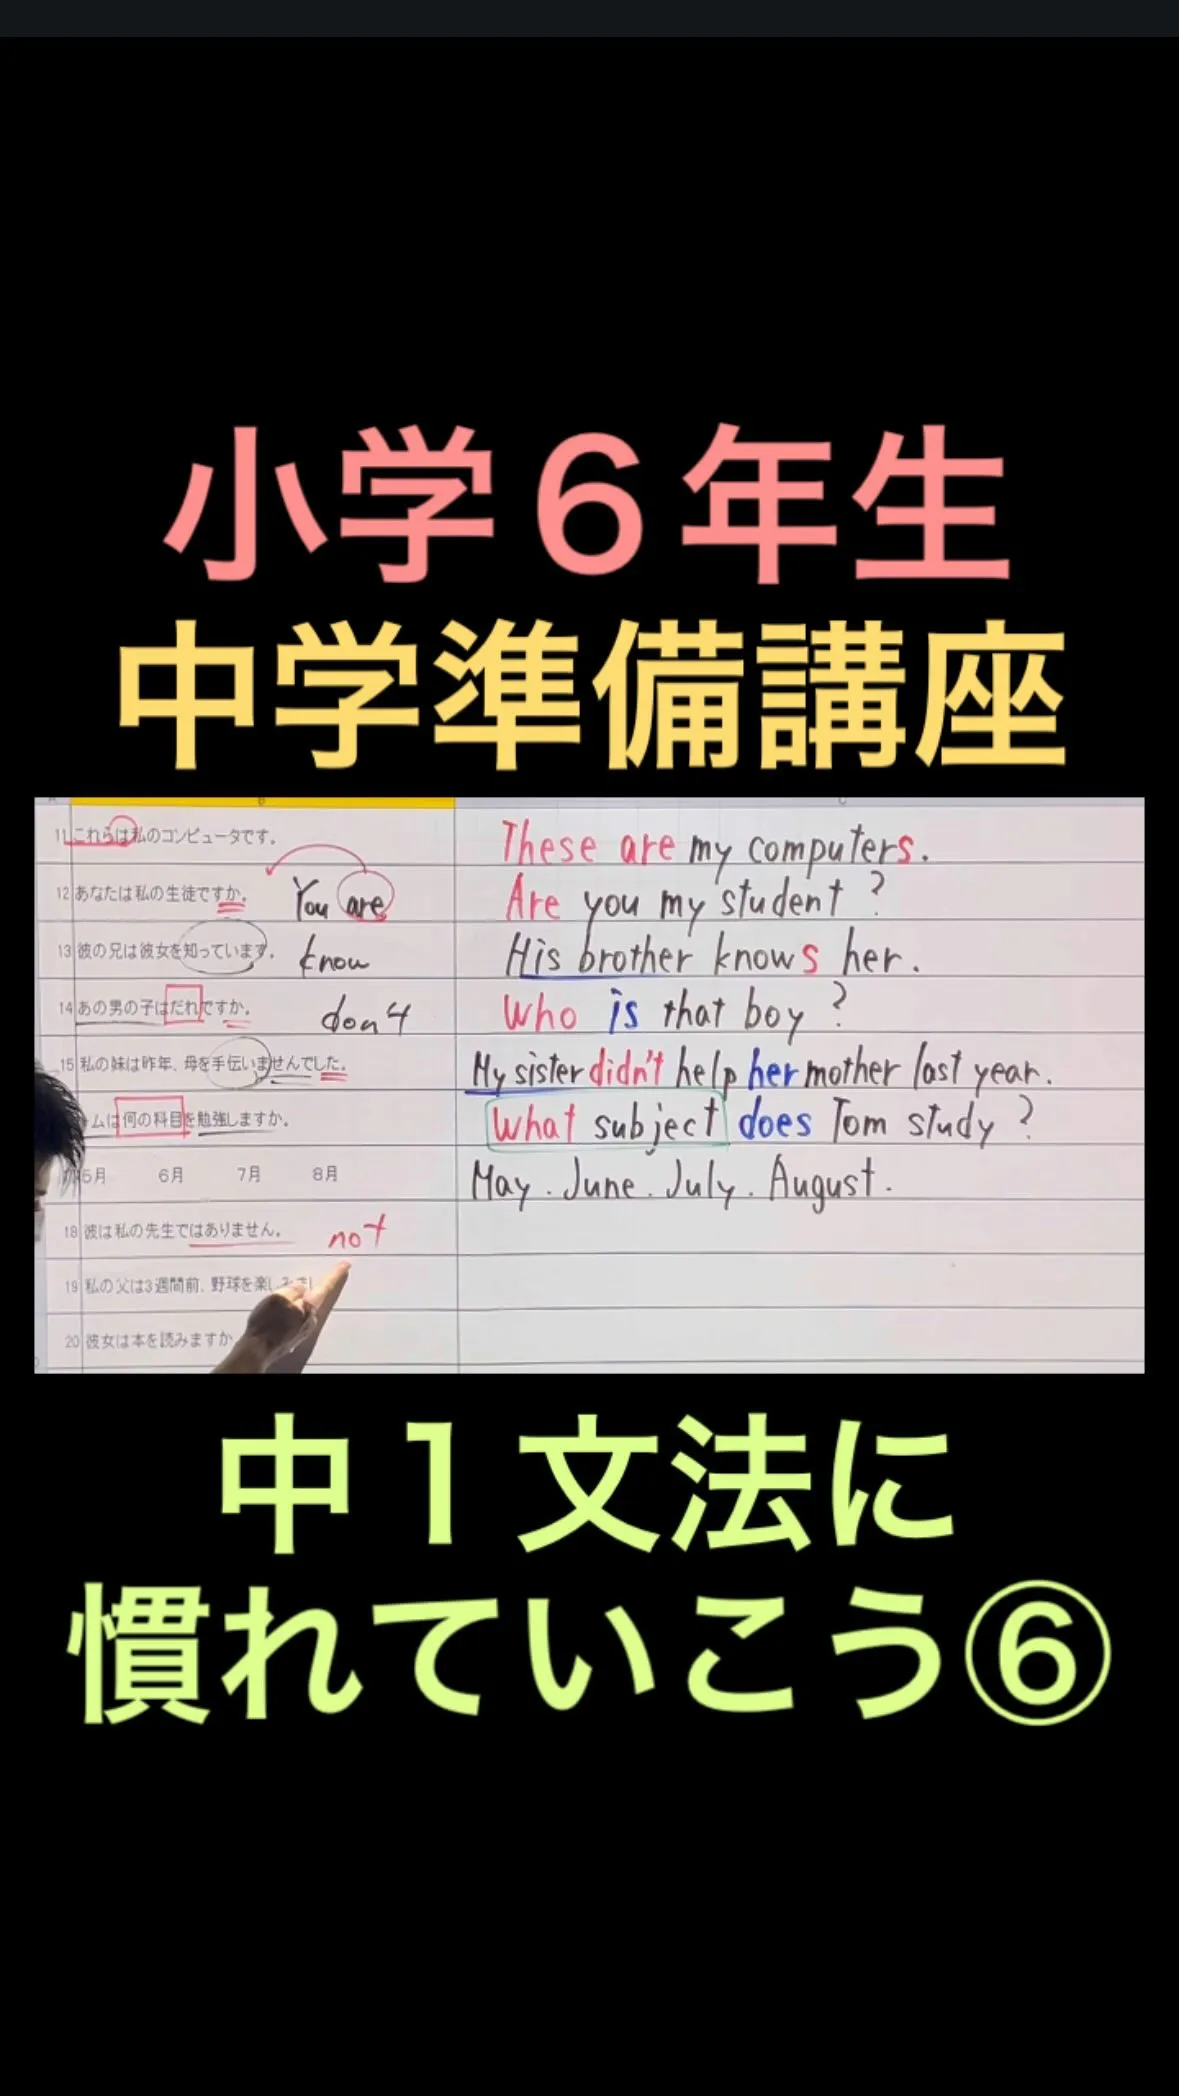 小学６年生
中学準備講座
11 これらは私のコンピュータです。 These are my computers.
12 あなたは私の生徒ですか。 You are Are you my student?
13 彼の兄は彼女を知っています。 know His brother knows her.
14 あの男の子はだれですか。 Who is that boy?
15 私の妹は昨年、母を手伝いませんでした。 My sister didn't help her mother last year.
ムは何の科目を勉強しますか。 What subject does Tom study?
5月 6月 7月 8月 May. June. July. August.
18 彼は私の先生ではありません。 not
19 私の父は3週間前、野球を楽し
20 彼女は本を読みますか
中１文法に
慣れていこう⑥